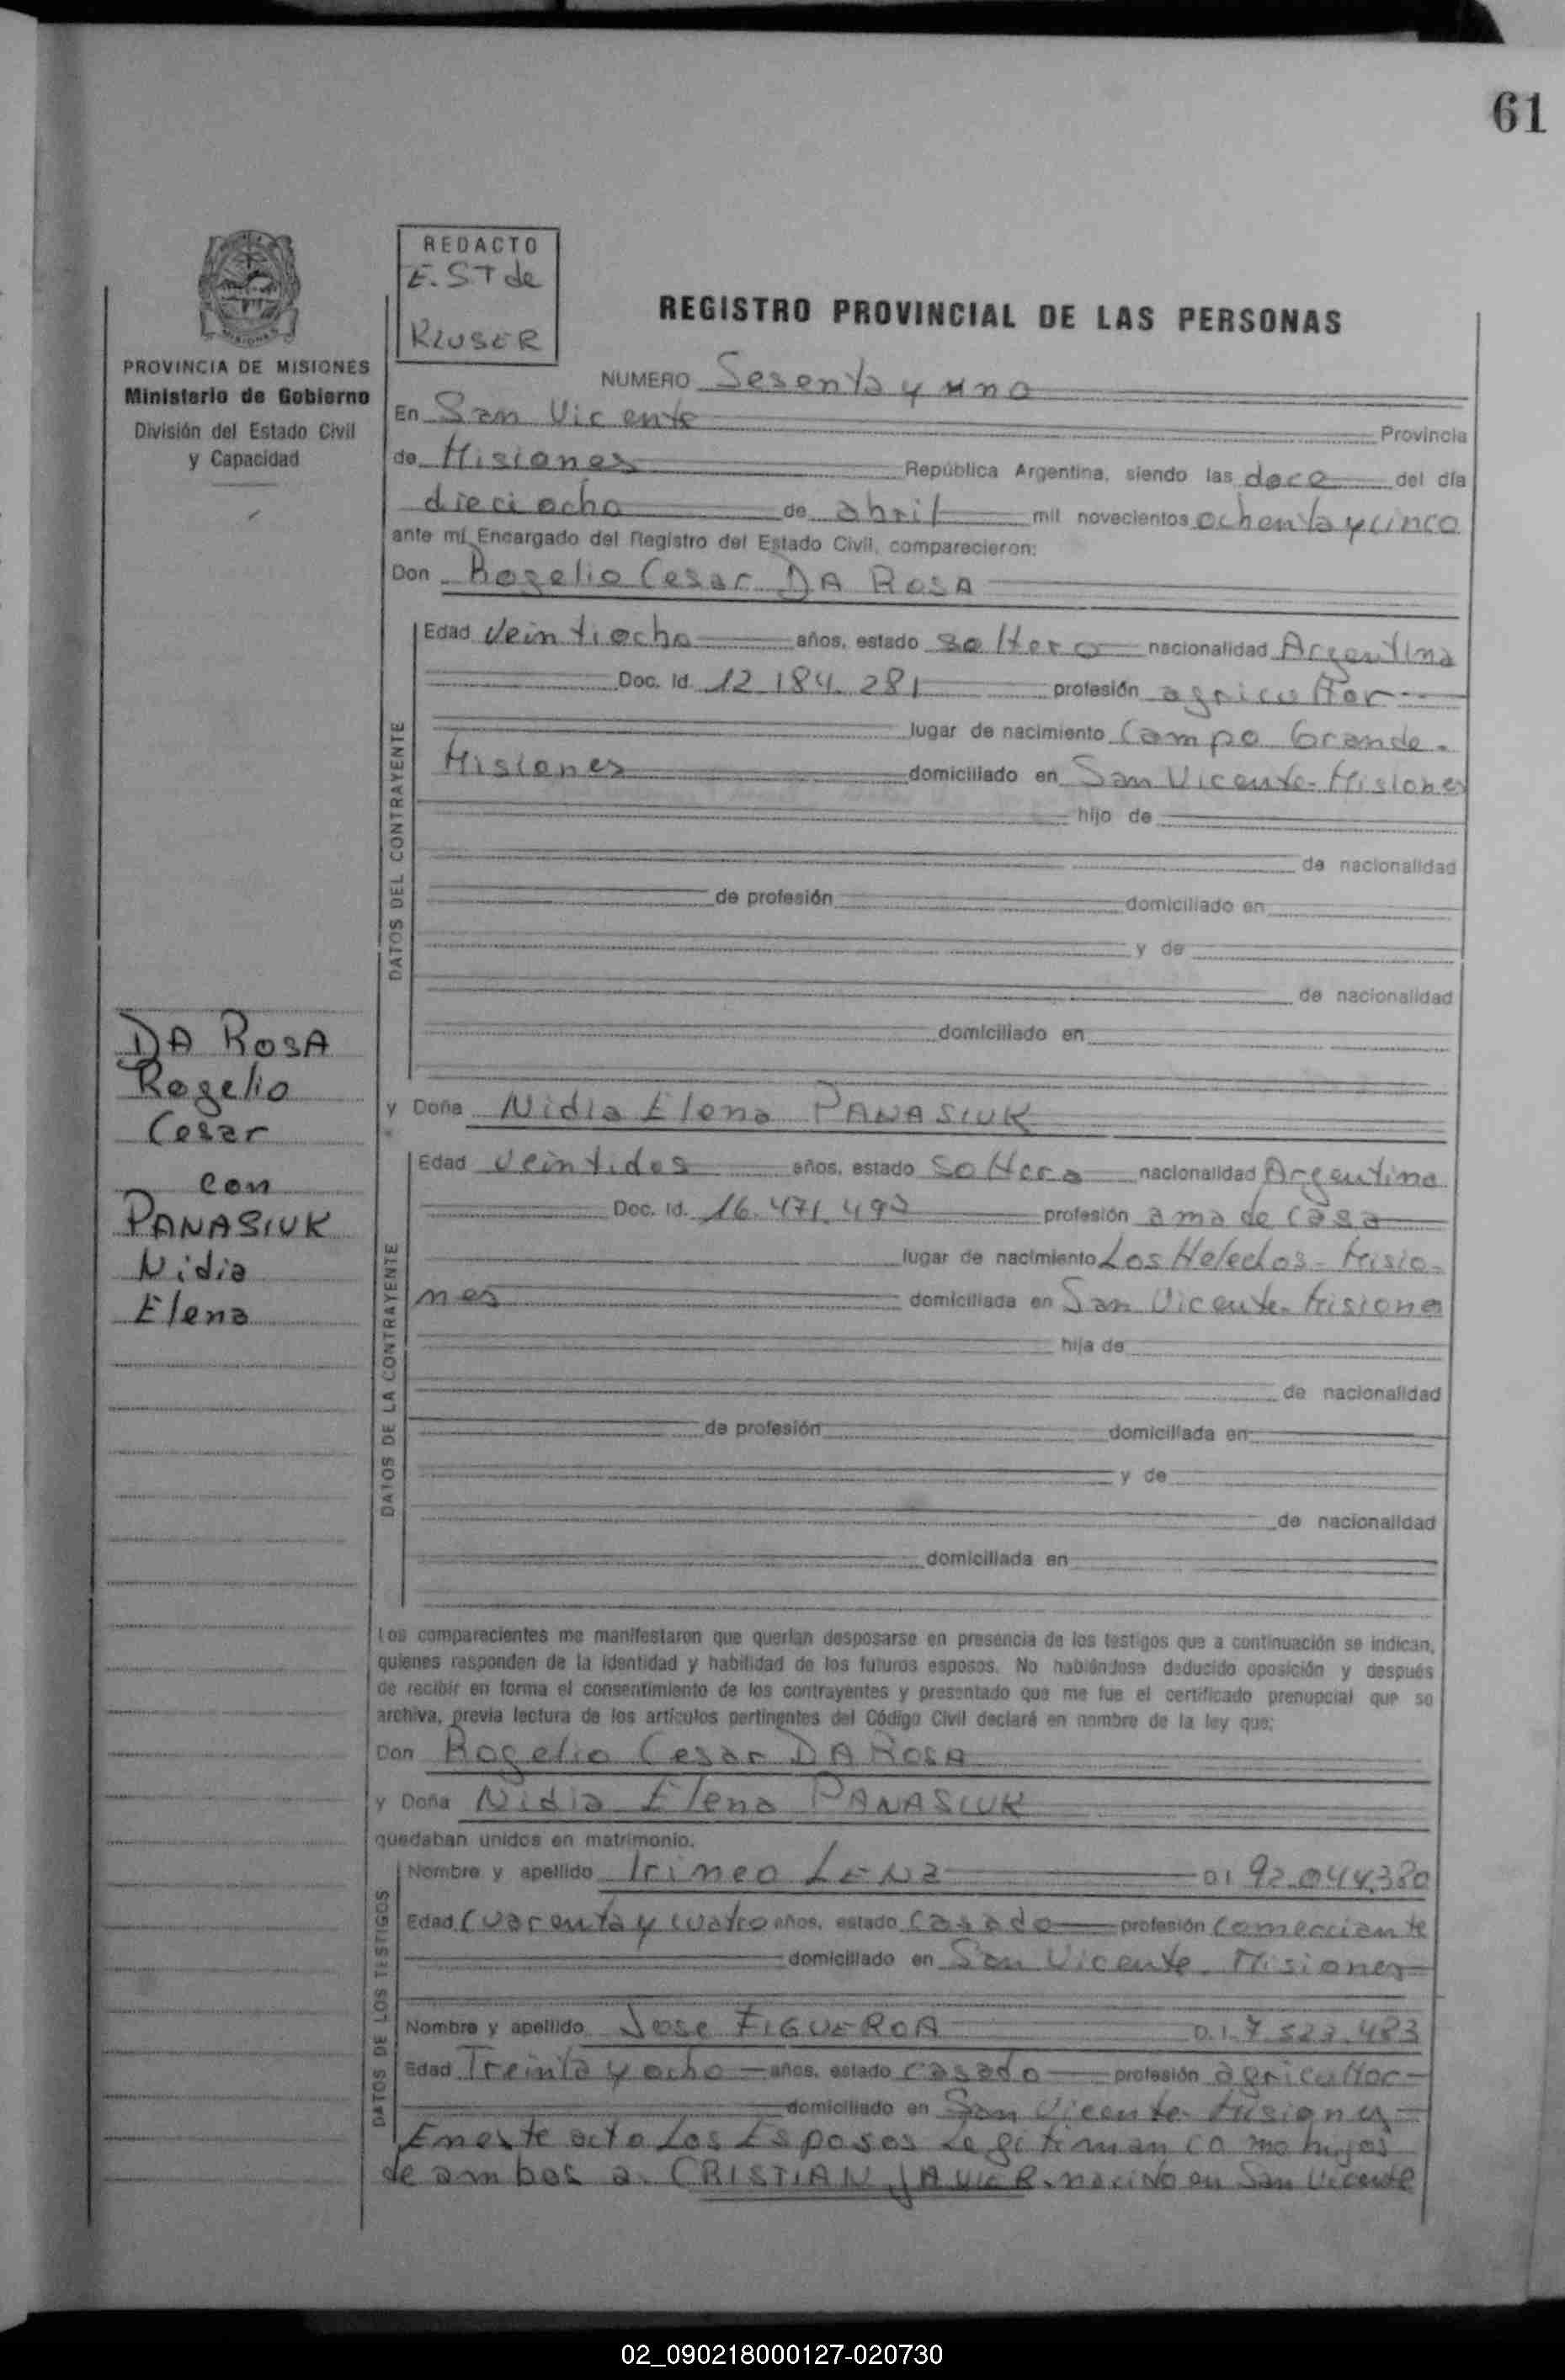 61
REDACTO
E. ST de
KLUSER
REGISTRO PROVINCIAL DE LAS PERSONAS
PROVINCIA DE MISIONES
Ministerio de Gobierno
División del Estado Civil
y Capacidad
NUMERO Sesenta y uno
En San Vicente Provincia
de Misiones República Argentina, siendo las doce del día
dieciocho de abril mil novecientos ochenta y cinco
ante mí, Encargado del Registro del Estado Civil, comparecieron:
Don Rogelio Cesar DA ROSA
DATOS DEL CONTRAYENTE
Edad veintiocho años, estado soltero nacionalidad Argentina
Doc. Id. 12.184.281 profesión agricultor
lugar de nacimiento Campo Grande.
Misiones domiciliado en San Vicente-Misiones
hijo de
de nacionalidad
de profesión domiciliado en
y de
de nacionalidad
domiciliado en
DA ROSA
Rogelio
Cesar
con
PANASIUK
Nidia
Elena
y Doña Nidia Elena PANASIUK
DATOS DE LA CONTRAYENTE
Edad veintidos años, estado soltera nacionalidad Argentina
Doc. Id. 16.471.493 profesión ama de casa
lugar de nacimiento Los Helechos-Misio-
nes domiciliada en San Vicente-Misiones
hija de
de nacionalidad
de profesión domiciliada en
y de
de nacionalidad
domiciliada en
Los comparecientes me manifestaron que querían desposarse en presencia de los testigos que a continuación se indican,
quienes responden de la identidad y habilidad de los futuros esposos. No habiéndose deducido oposición y después
de recibir en forma el consentimiento de los contrayentes y presentado que me fue el certificado prenupcial que se
archiva, previa lectura de los artículos pertinentes del Código Civil declaré en nombre de la ley que:
Don Rogelio Cesar DA ROSA
y Doña Nidia Elena PANASIUK
quedaban unidos en matrimonio.
DATOS DE LOS TESTIGOS
Nombre y apellido Irineo LENZ D.I. 92.044.380
Edad Cuarenta y cuatro años, estado casado profesión comerciante
domiciliado en San Vicente-Misiones
Nombre y apellido Jose FIGUEROA D.I. 7.523.483
Edad Treinta y ocho años, estado casado profesión agricultor
domiciliado en San Vicente-Misiones
En este acto Los Esposos Legitiman como hijos
de ambos a: CRISTIAN JAVIER, nacido en San Vicente
02_090218000127-020730